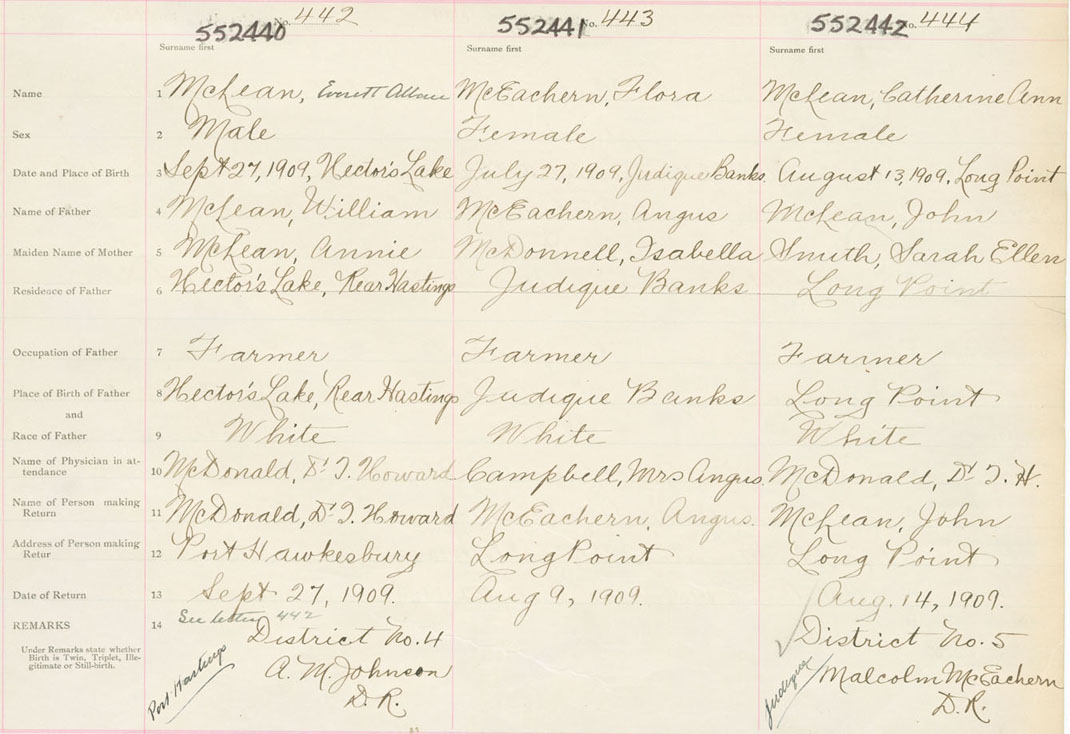 No. 442 No. 443 No. 444
552440 552441 552442
Surname first Surname first Surname first
Name 1 McLean, Everett Allan McEachern, Flora McLean, Catherine Ann
Sex 2 Male Female Female
Date and Place of Birth 3 Sept 27, 1909, Hector's Lake July 27, 1909, Judique Banks. August 13, 1909, Long Point
Name of Father 4 McLean, William McEachern, Angus McLean, John
Maiden Name of Mother 5 McLean, Annie McDonnell, Isabella Smith, Sarah Ellen
Residence of Father 6 Hector's Lake, Rear Hastings Judique Banks Long Point
Occupation of Father 7 Farmer Farmer Farmer
Place of Birth of Father 8 Hector's Lake, Rear Hastings Judique Banks Long Point
and
Race of Father 9 White White White
Name of Physician in at-
tendance 10 McDonald, Dr T. Howard Campbell, Mrs Angus. McDonald, Dr T. H.
Name of Person making
Return 11 McDonald, Dr T. Howard McEachern, Angus. McLean, John
Address of Person making
Retur 12 Port Hawkesbury Long Point Long Point
Date of Return 13 Sept 27, 1909. Aug 9, 1909. Aug. 14, 1909.
REMARKS 14 See letter 442
Under Remarks state whether
Birth is Twin, Triplet, Ille-
gitimate or Still-birth.
District No. 4 District No. 5
Port Hastings A. M. Johnson Judique Malcolm McEachern
D. R. D. R.